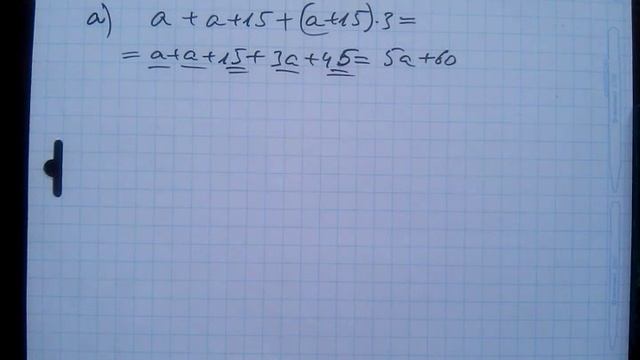 a) a + a + 15 + (a + 15) · 3 =
= a + a + 15 + 3a + 45 = 5a + 60